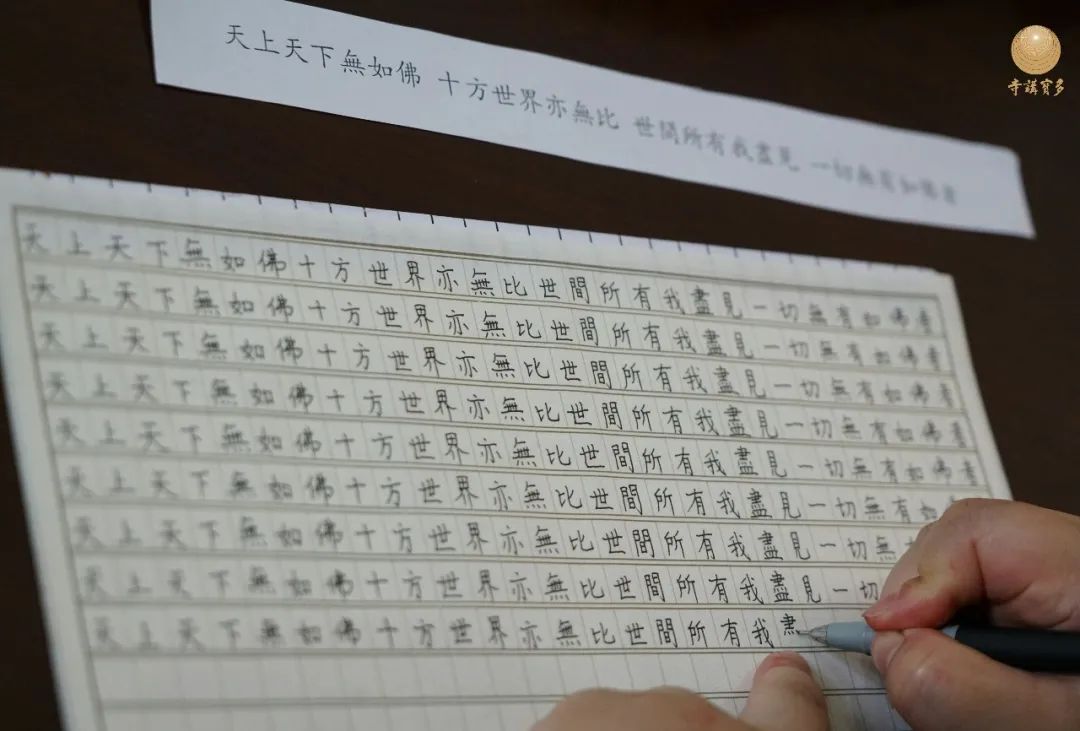 寺講寳多
天上天下無如佛 十方世界亦無比 世間所有我盡見 一切無有如佛者
天上天下無如佛十方世界亦無比世間所有我盡見一切無有如佛者
天上天下無如佛十方世界亦無比世間所有我盡見一切無有如佛者
天上天下無如佛十方世界亦無比世間所有我盡見一切無有如佛者
天上天下無如佛十方世界亦無比世間所有我盡見一切無有如佛者
天上天下無如佛十方世界亦無比世間所有我盡見一切無有如佛者
天上天下無如佛十方世界亦無比世間所有我盡見一切無有如
天上天下無如佛十方世界亦無比世間所有我盡見一切無
天上天下無如佛十方世界亦無比世間所有我盡見一切
天上天下無如佛十方世界亦無比世間所有我